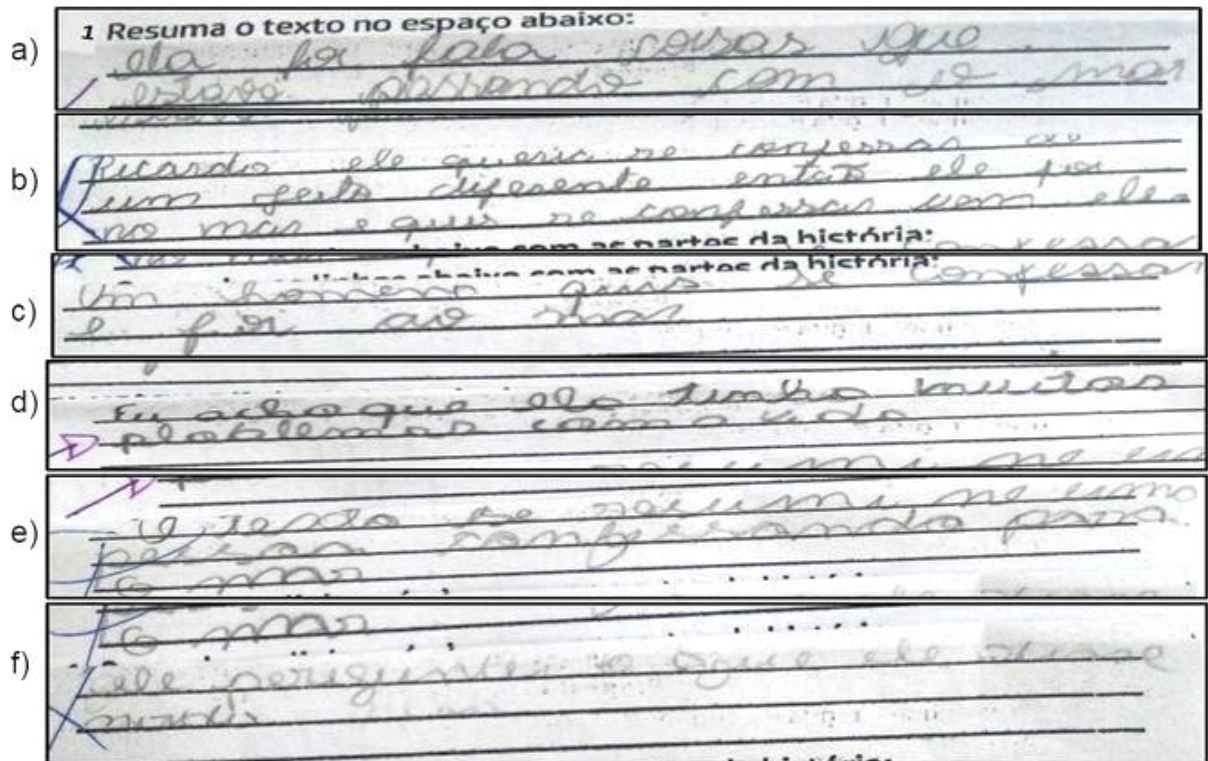 a)
1 Resuma o texto no espaço abaixo:
ela foi fala coisas que
estava passando com o mar
b)
Ricardo ele queria se confessar de
um jeito diferente então ele foi
no mar e quis se confessar com ele.
abaixo com as partes da história:
c)
linhas abaixo com as partes da história:
Um homem quis se confessar
e foi ao mar
d)
Eu acho que ela tinha muitos
ploblemas com a vida
e)
O testo se resumi na uma
pessoa confessando para
o mar
f)
o mar
ele perguntou o que ele